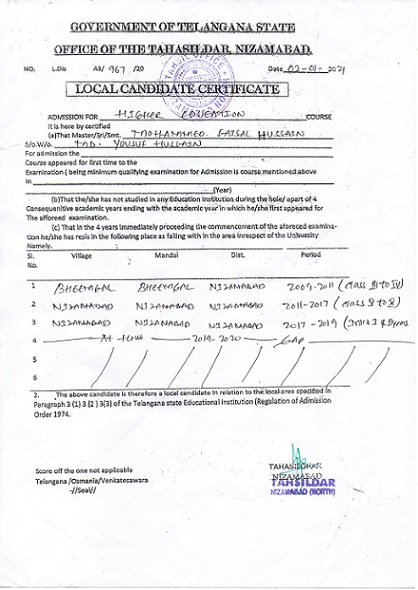 GOVERNMENT OF TELANGANA STATE
OFFICE OF THE TAHASILDAR, NIZAMABAD.
NO. L.Dis A3/ 967 /20 Date 02-01-2021
LOCAL CANDIDATE CERTIFICATE
ADMISSION FOR HIGHER EDUCATION COURSE
It is here by certified
(a)That Master/Sri/Smt. MOHAMMED. FAISAL HUSSAIN
S/o.W/o. MD. YOUSUF HUSSAIN
For admission the
Course appeared for first time to the
Examination ( being minimum qualifying examination for Admission is course mentioned above
in
(Year)
(b)That the/she has not studied in any Education Institution during the hole/ apart of 4
Consequenitive academic years ending with the academic year in which he/she first appeared for
The afforeed examination.
(c) That in the 4 years immediately proceeding the commencement of the aforeed examina-
tion he/she has resis in the following place as falling with in the area inrespect of the University
Namely.
Sl. No. Village Mandal Dist. Period
1 BHEEMGAL BHEEMGAL NIZAMABAD 2009-2011 (class III to IV)
2 NIZAMABAD NIZAMABAD NIZAMABAD 2011-2017 (class V to X)
3 NIZAMABAD NIZAMABAD NIZAMABAD 2017-2019 (Inter I &
4 At Home 2019-2020 GAP
5
6
2. The above candidate is therefore a local candidate in relation to the local area specified in
Paragraph 3 (1) 3 (2 ) 3(3) of the Telangana state Educational Institution (Regulation of Admission
Order 1974.
Score off the one not applicable
Telangana /Osmania/Venkatesawara
-//Seal//
TAHASILDHAR
NIZAMABAD
TAHSILDAR
NIZAMABAD (NORTH)